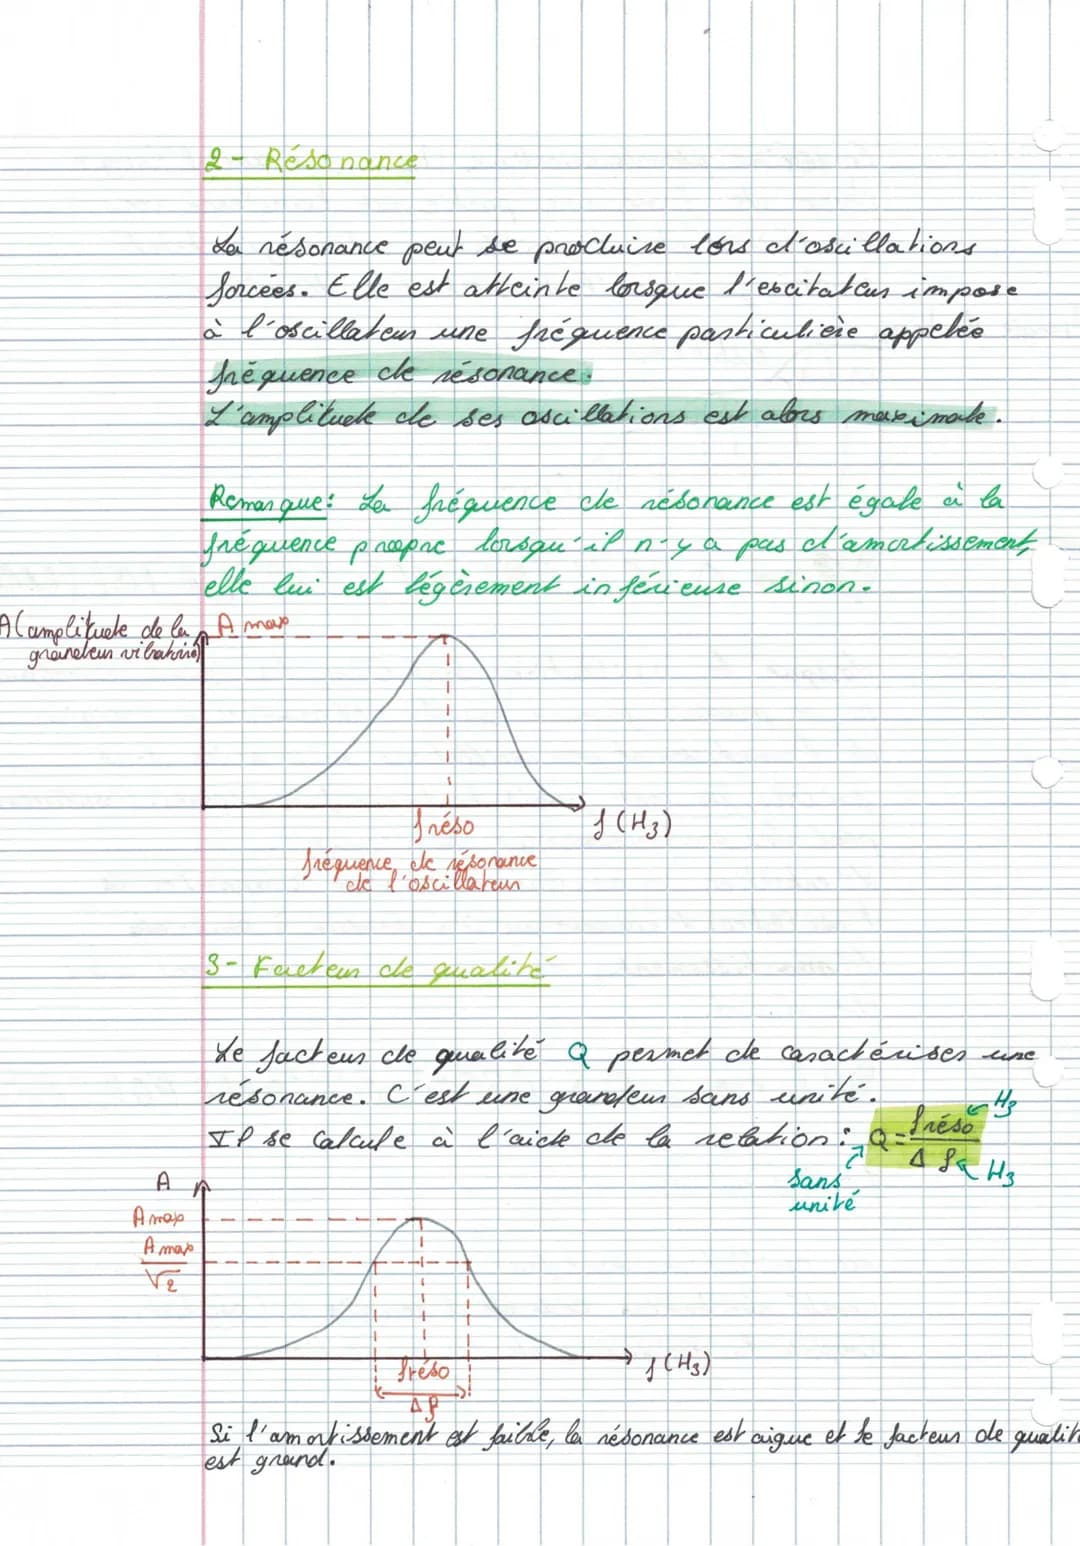 2 - Résonance
La résonance peut se produire lors d'oscillations
forcées. Elle est atteinte lorsque l'excitateur impose
à l'oscillateur une fréquence particulière appelée
fréquence de résonance.
L'amplitude de ses oscillations est alors maximale.
Remarque: La fréquence de résonance est égale à la
fréquence propre lorsqu'il n'y a pas d'amortissement,
elle lui est légèrement inférieure sinon.
A (amplitude de la
grandeur vibratoire)
A max
f réso
f (Hz)
fréquence de résonance
de l'oscillateur
3 - Facteur de qualité
Le facteur de qualité Q permet de caractériser une
résonance. C'est une grandeur sans unité.
Il se calcule à l'aide de la relation : Q = fréso / Δf
Hz
Hz
sans
unité
A
A max
A max
√2
fréso
f (Hz)
Δf
Si l'amortissement est faible, la résonance est aigue et le facteur de qualité
est grand.